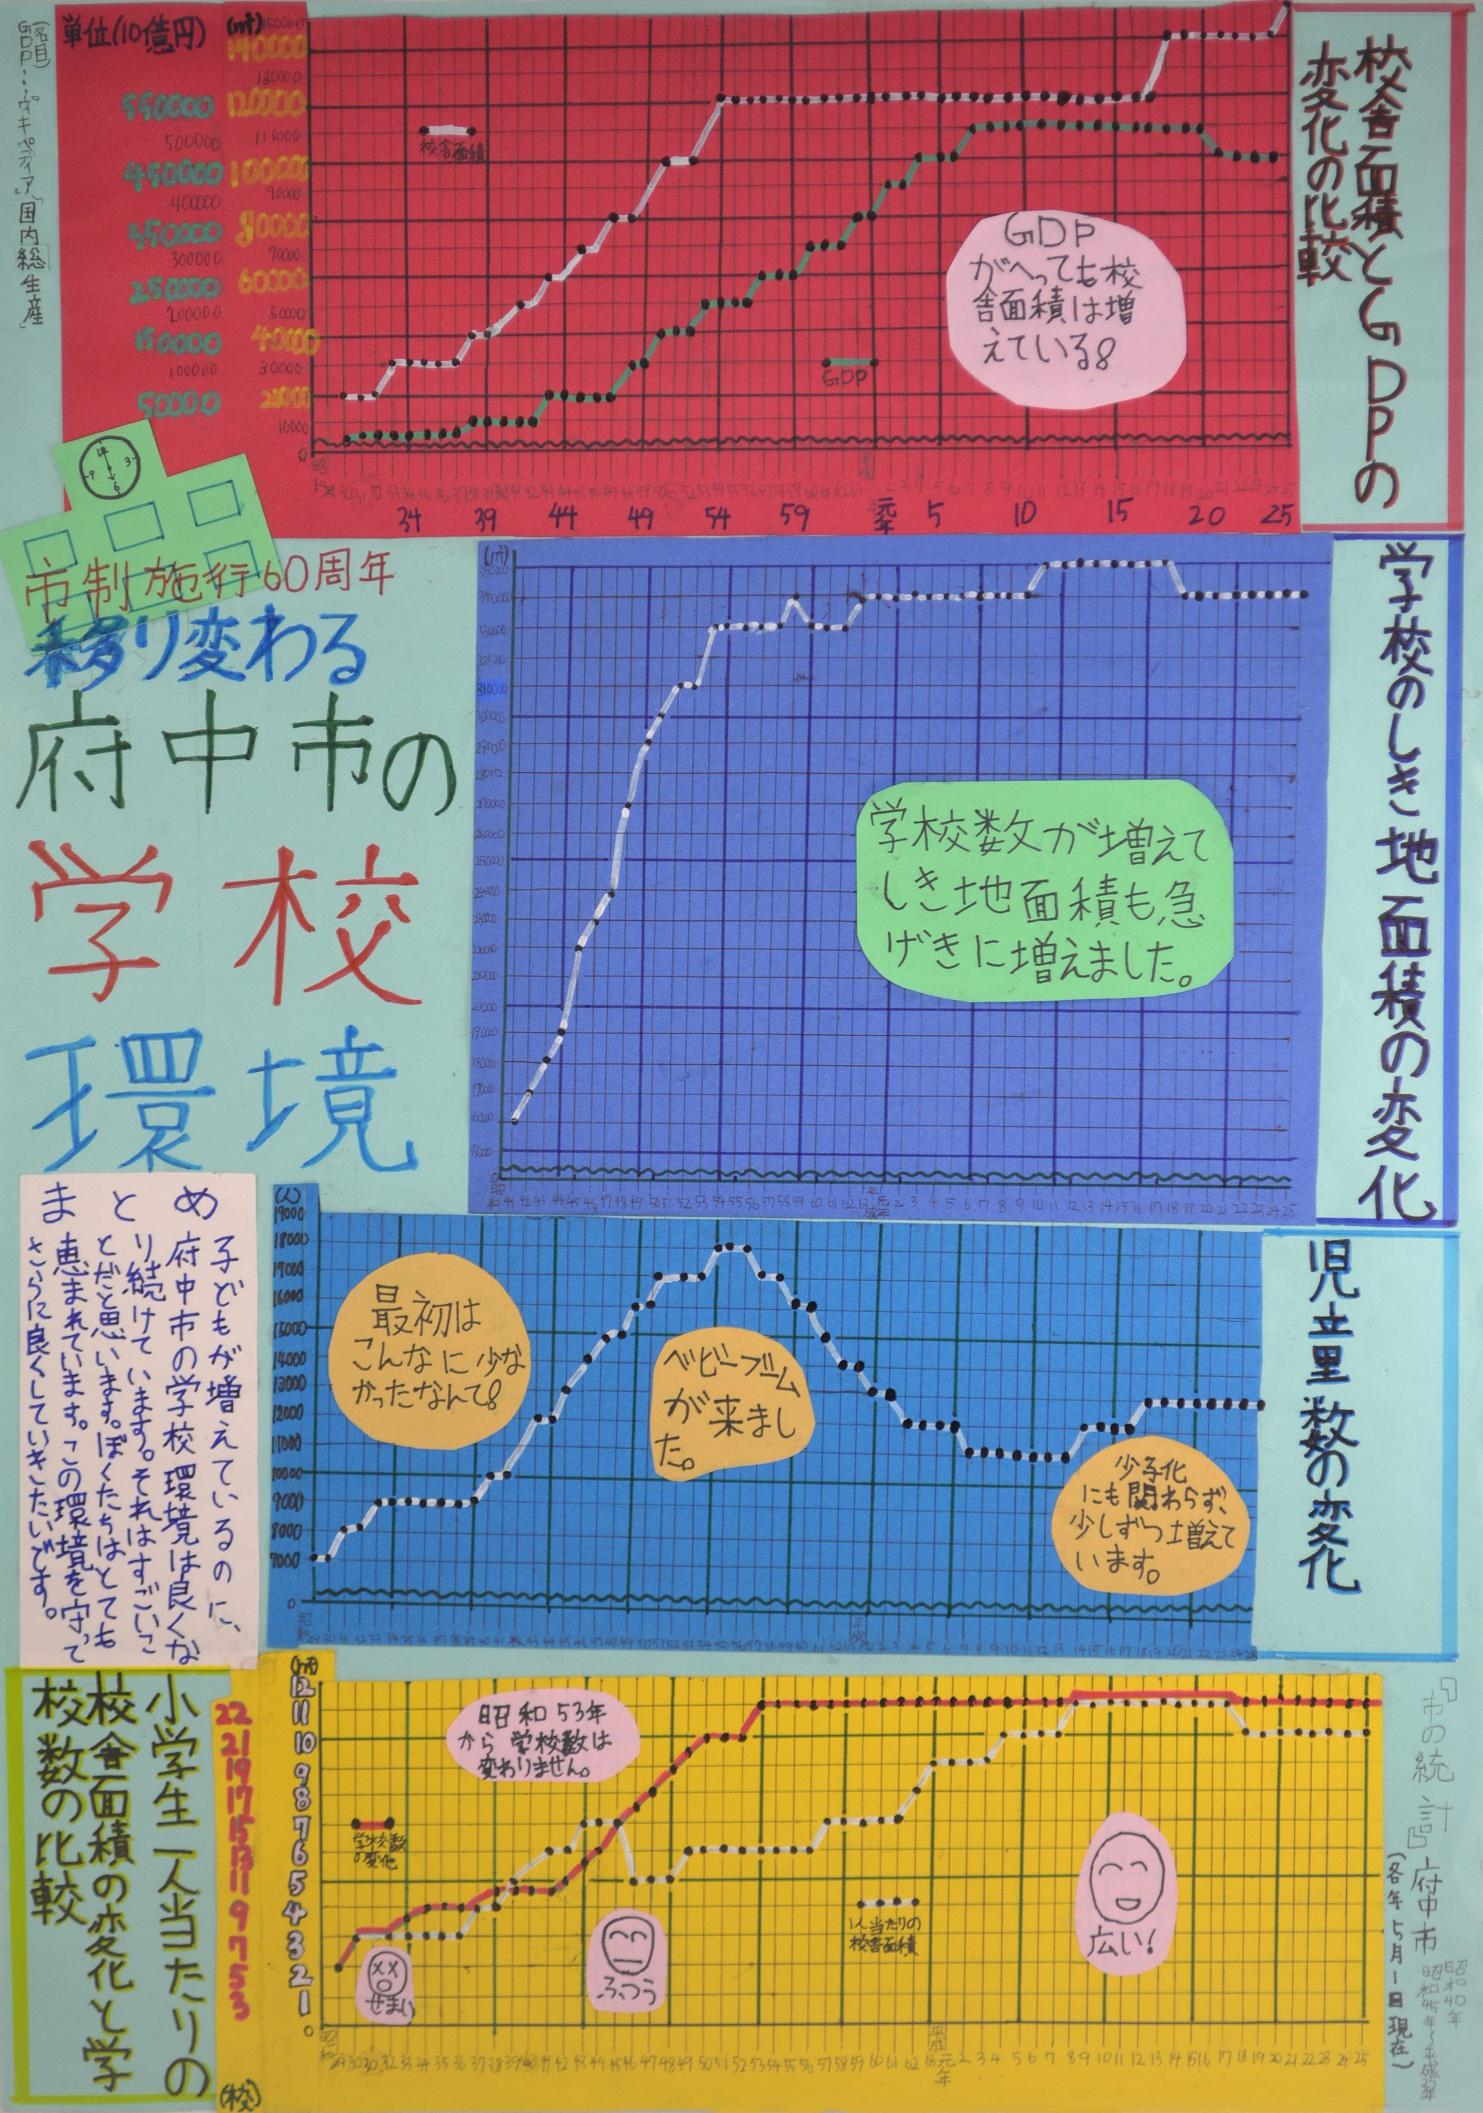 校舎面積とGDPの
変化の比較
単位(10億円)
(㎡)
140000
130000
550000 120000
500000 110000
450000 100000
400000 90000
350000 80000
300000 70000
250000 60000
200000 50000
150000 40000
100000 30000
50000 20000
10000
0
校舎面積
GDP
GDP
がへっても校
舎面積は増
えている!
34 39 44 49 54 59 元年 5 10 15 20 25
(名目)
GDP…ウィキペディア「国内総生産」
市制施行60周年
移り変わる
府中市の
学校
環境
学校のしき地面積の変化
(㎡)
学校数が増えて
しき地面積も急
げきに増えました。
児童数の変化
(人)
19000
18000
17000
16000
15000
14000
13000
12000
11000
10000
9000
8000
7000
0
最初は
こんなに少な
かったなんて!
ベビーブーム
が来まし
た。
少子化
にも関わらず、
少しずつ増えて
います。
まとめ
子どもが増えているのに、
府中市の学校環境は良くな
り続けています。それはすごいこ
とだと思います。ぼくたちはとても
恵まれています。この環境を守って
さらに良くしていきたいです。
小学生一人当たりの
校舎面積の変化と学
校数の比較
(㎡)
12
11
10
9
8
7
6
5
4
3
2
1
0
22
21
19
17
15
13
11
9
7
5
3
(校)
昭和53年
から学校数は
変わりません。
学校数
の変化
1人当たりの
校舎面積
せまい
ふつう
広い!
『市の統計』府中市
昭和40年
昭和45年～平成25年
(各年5月1日現在)